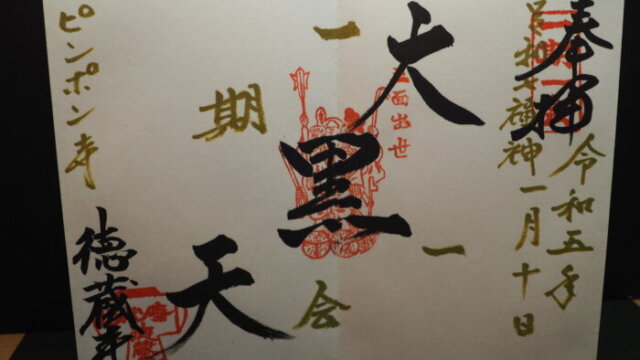 奉拝
令和五年
一月十日
昭和七福神
三面出世
大黒天
一期一会
徳蔵寺
ピンポン寺